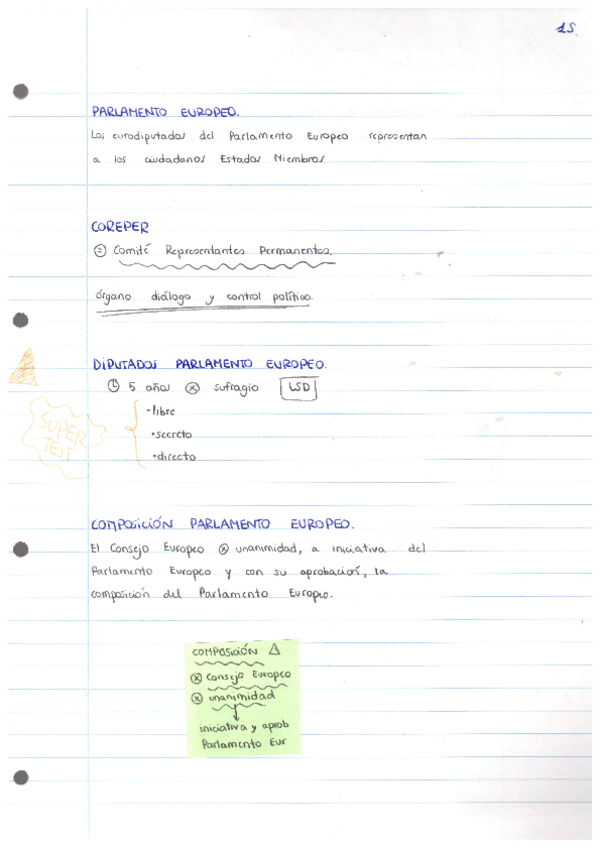 15.
PARLAMENTO EUROPEO.
Los eurodiputados del Parlamento Europeo representan
a los ciudadanos Estados Miembros
COREPER
= Comité Representantes Permanentes.
órgano diálogo y control político.
DIPUTADOS PARLAMENTO EUROPEO.
5 años x sufragio LSD
-libre
•secreto
•directo
SUPER
TEST
COMPOSICIÓN PARLAMENTO EUROPEO.
El Consejo Europeo x unanimidad, a iniciativa del
Parlamento Europeo y con su aprobación, la
composición del Parlamento Europeo.
COMPOSICIÓN
x Consejo Europeo
x unanimidad
iniciativa y aprob
Parlamento Eur